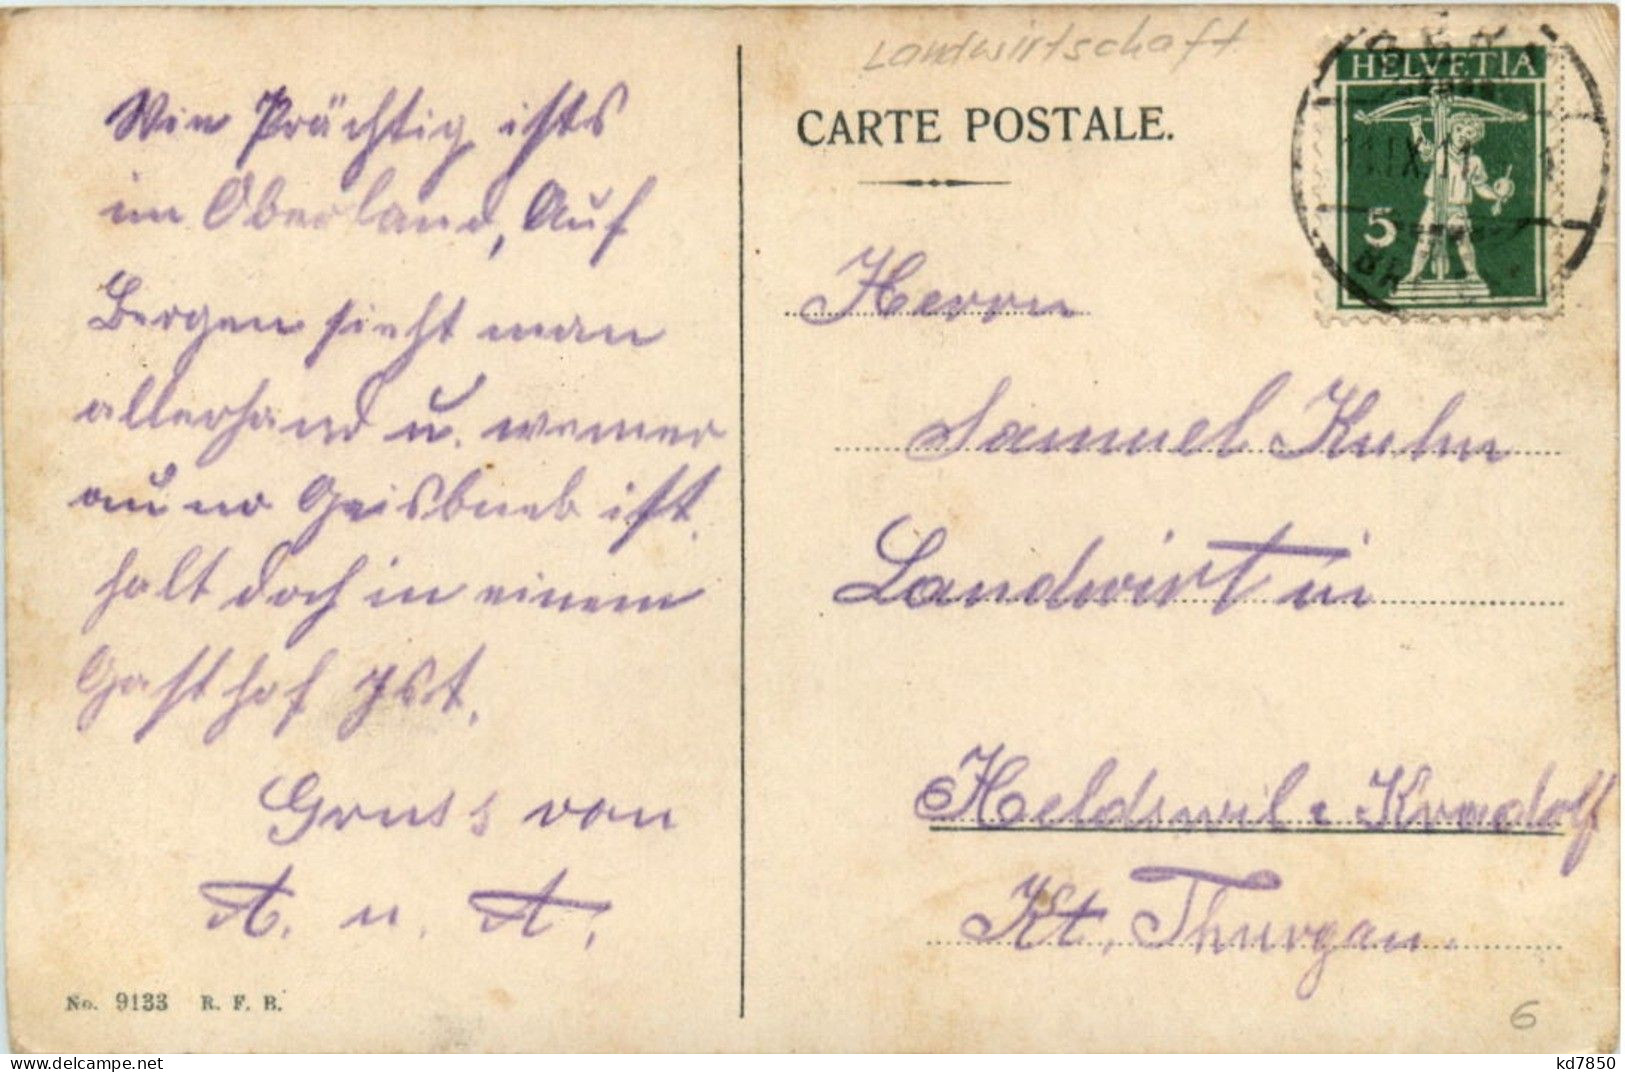 Landwirtschaft
CARTE POSTALE.
HELVETIA
5
Wie Prächtig ists
im Oberland, Auf
Bergen sieht man
allerhand u. wemer
au no Geisbueb ist.
halt doch in einem
Gasthof Ist.
Gruss von
A. u. A.
Herrn
Samuel Kuhn
Landwirt in
Heldswil : Kradolf
Kt. Thurgau.
No. 9133 R. F. B.
6
kd7850